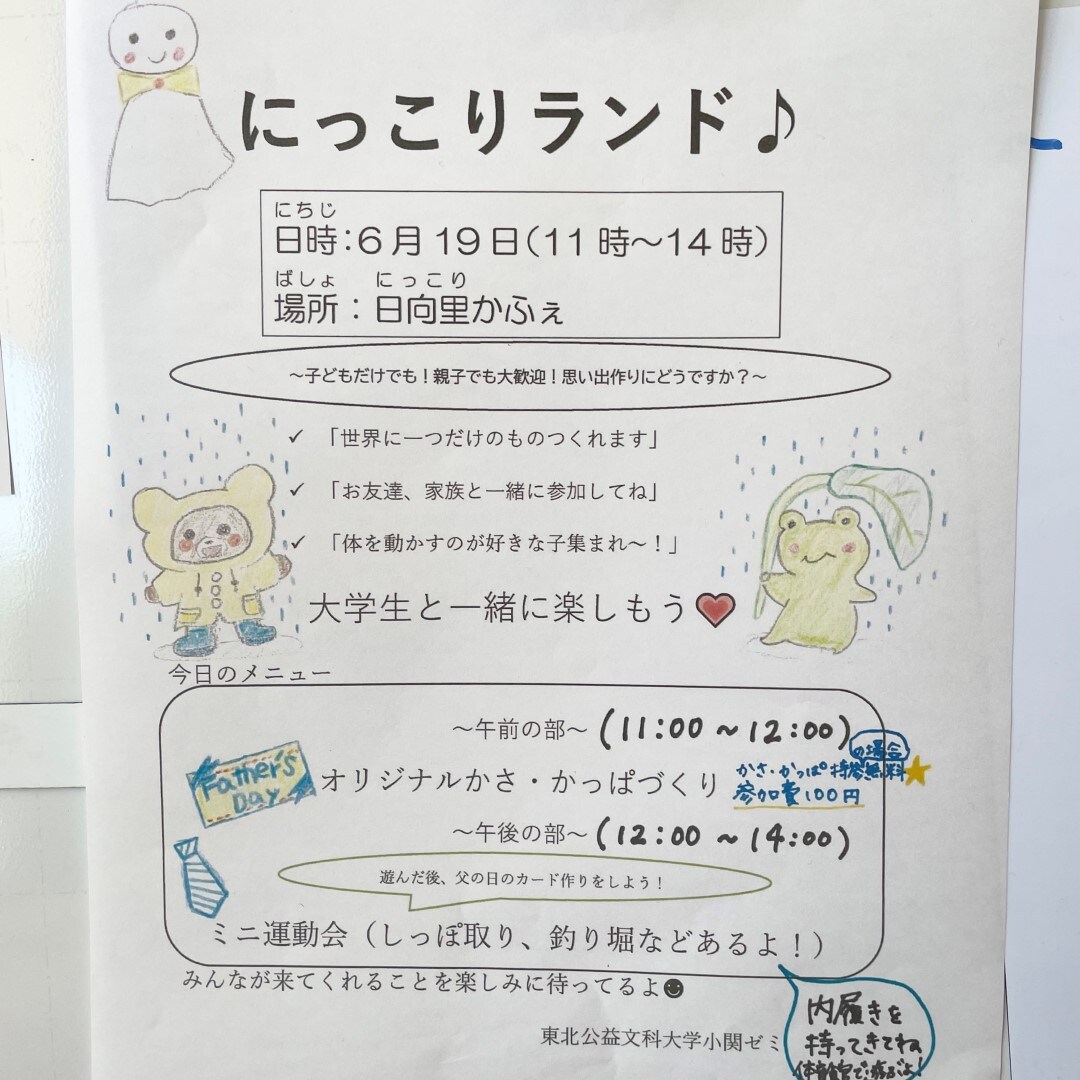 にっこりランド♪
にちじ
日時：6月19日（11時～14時）
ばしょ にっこり
場所：日向里かふぇ
～子どもだけでも！親子でも大歓迎！思い出作りにどうですか？～
✓ 「世界に一つだけのものつくれます」
✓ 「お友達、家族と一緒に参加してね」
✓ 「体を動かすのが好きな子集まれ～！」
大学生と一緒に楽しもう❤
今日のメニュー
～午前の部～（11:00～12:00）
Father's
Day
オリジナルかさ・かっぱづくり
かさ・かっぱ持参の場合無料★
参加費100円
～午後の部～（12:00～14:00）
遊んだ後、父の日のカード作りをしよう！
ミニ運動会（しっぽ取り、釣り堀などあるよ！）
みんなが来てくれることを楽しみに待ってるよ☻
東北公益文科大学小関ゼミ
内履きを
持ってきてね
体育館で遊ぶよ！